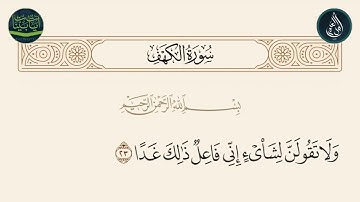 سُورَةُ الكَهْفِ
بِسْمِ اللَّهِ الرَّحْمَٰنِ الرَّحِيمِ
وَلَا تَقُولَنَّ لِشَا۟ىْءٍ إِنِّى فَاعِلٌ ذَٰلِكَ غَدًا ٢٣